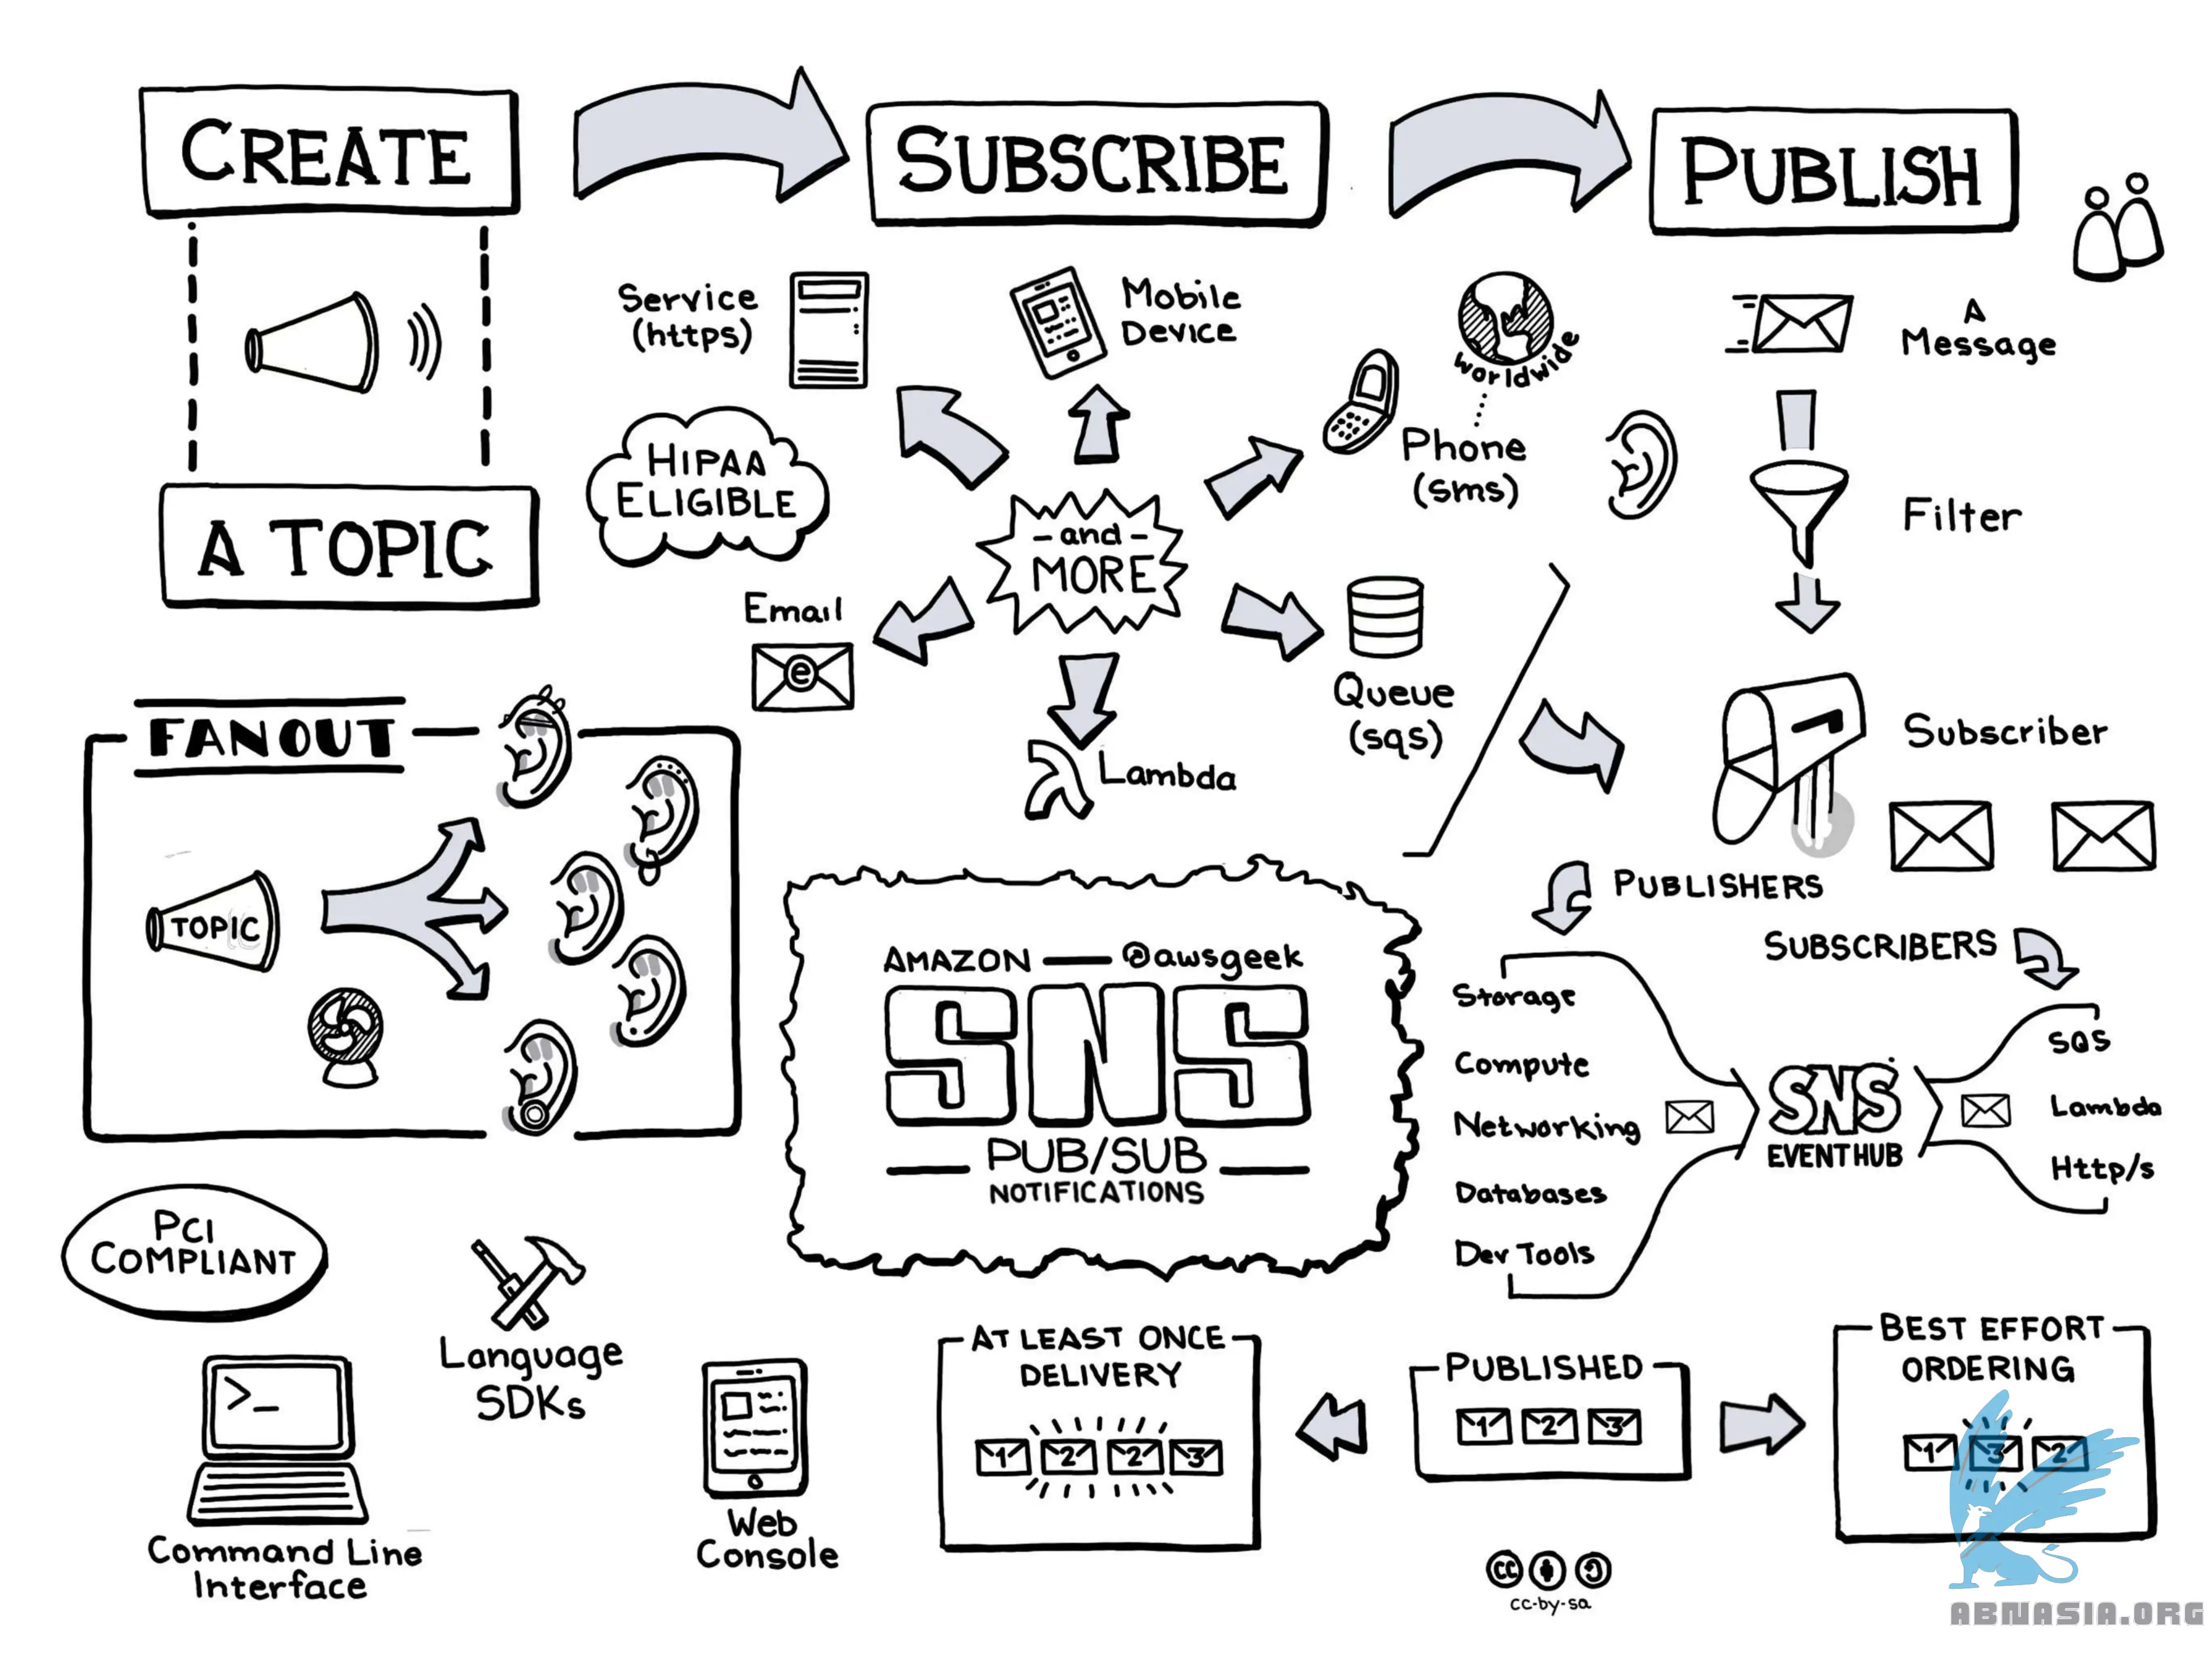 CREATE
A TOPIC
SUBSCRIBE
PUBLISH
Service
(https)
Mobile
Device
worldwide
Phone
(sms)
HIPAA
ELIGIBLE
- and -
MORE
Email
e
Queue
(sqs)
Lambda
A
Message
Filter
Subscriber
FANOUT
TOPIC
AMAZON — @awsgeek
SNS
PUB/SUB
NOTIFICATIONS
PUBLISHERS
SUBSCRIBERS
Storage
Compute
Networking
Databases
Dev Tools
SNS
EVENT HUB
SQS
Lambda
Http/s
PCI
COMPLIANT
>_
Command Line
Interface
Language
SDKs
Web
Console
AT LEAST ONCE
DELIVERY
1 2 2 3
PUBLISHED
1 2 3
BEST EFFORT
ORDERING
1 3 2
cc
cc-by-sa
ABNASIA.ORG